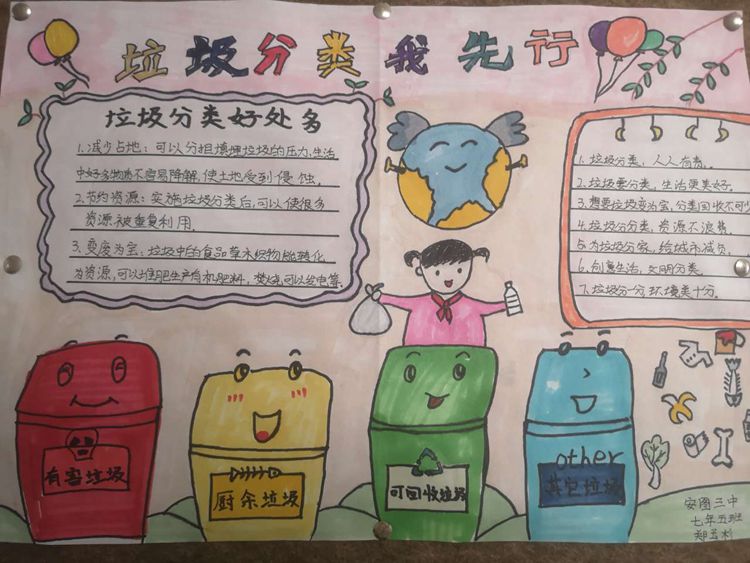 垃圾分类我先行
垃圾分类好处多
1.减少占地：可以分担填埋垃圾的压力、生活
中好多物质不容易降解,使土地受到侵蚀。
2.节约资源：实施垃圾分类后,可以使很多
资源被重复利用。
3.变废为宝：垃圾中的食品草木织物能转化
为资源,可以堆肥生产有机肥料,焚烧可以发电等.
1.垃圾分类,人人有责.
2.垃圾要分类,生活更美好.
3.想要垃圾变为宝,分类回收不可少
4.垃圾分分类,资源不浪费.
5.为垃圾分家,给城市减负.
6.创意生活,文明分类.
7.垃圾分一分,环境美十分.
有害垃圾
厨余垃圾
可回收垃圾
other
其它垃圾
安图三中
七年五班